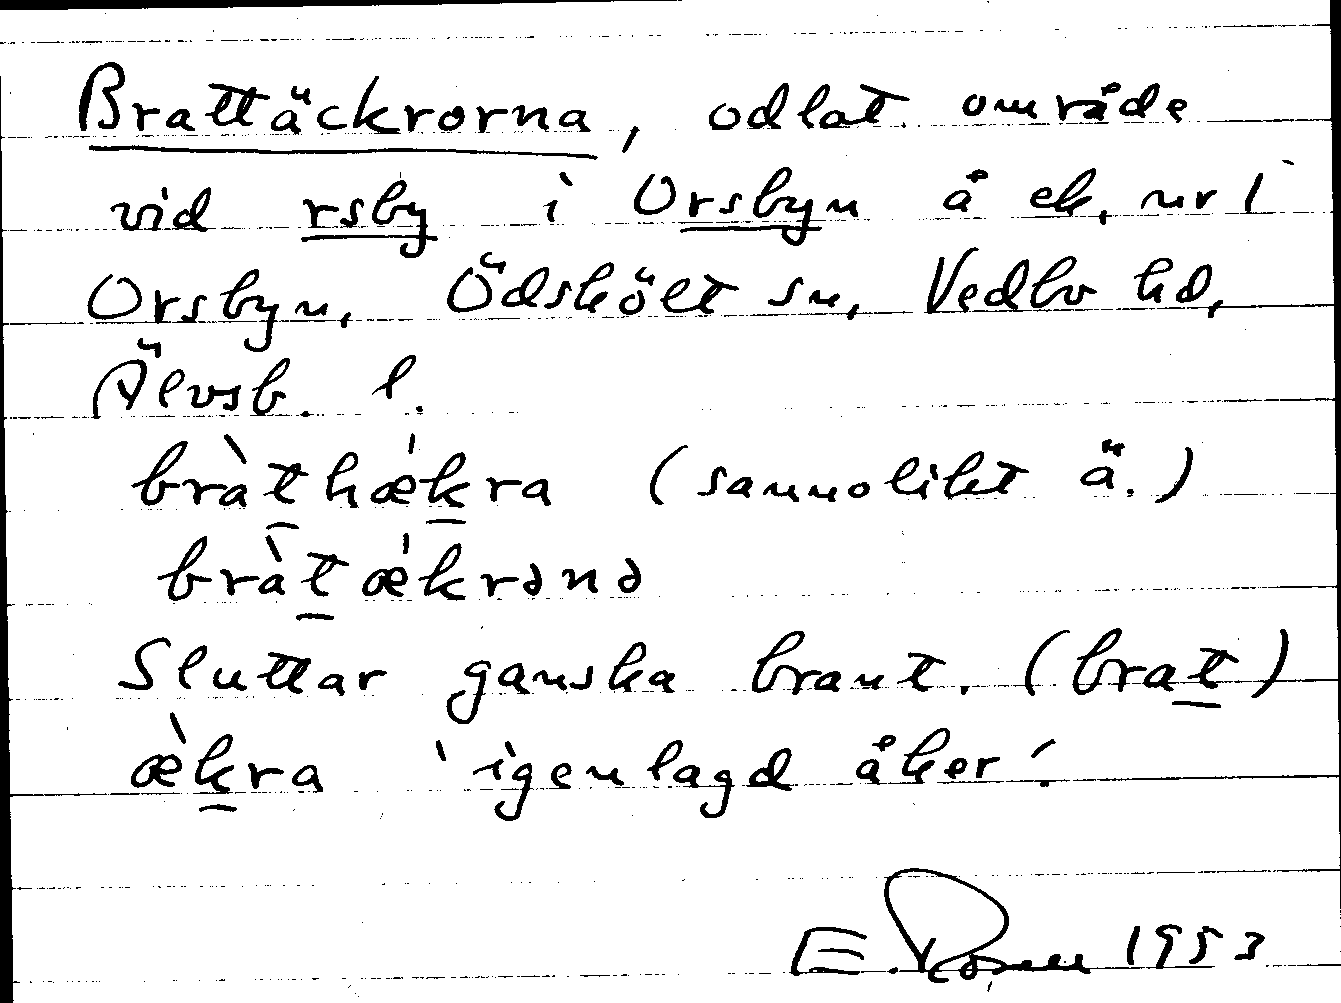 Brattäckrorna, odlat område
vid rsby i Orsbyn å ek. nr 1
Orsbyn, Ödskölt sn, Vedbo hd,
Älvsb. l.
bràthǽkra (sannolikt ä.)
bràtǽkrənə
Sluttar ganska brant. (brat)
æ̀kra 'igenlagd åker'.
E. 1953